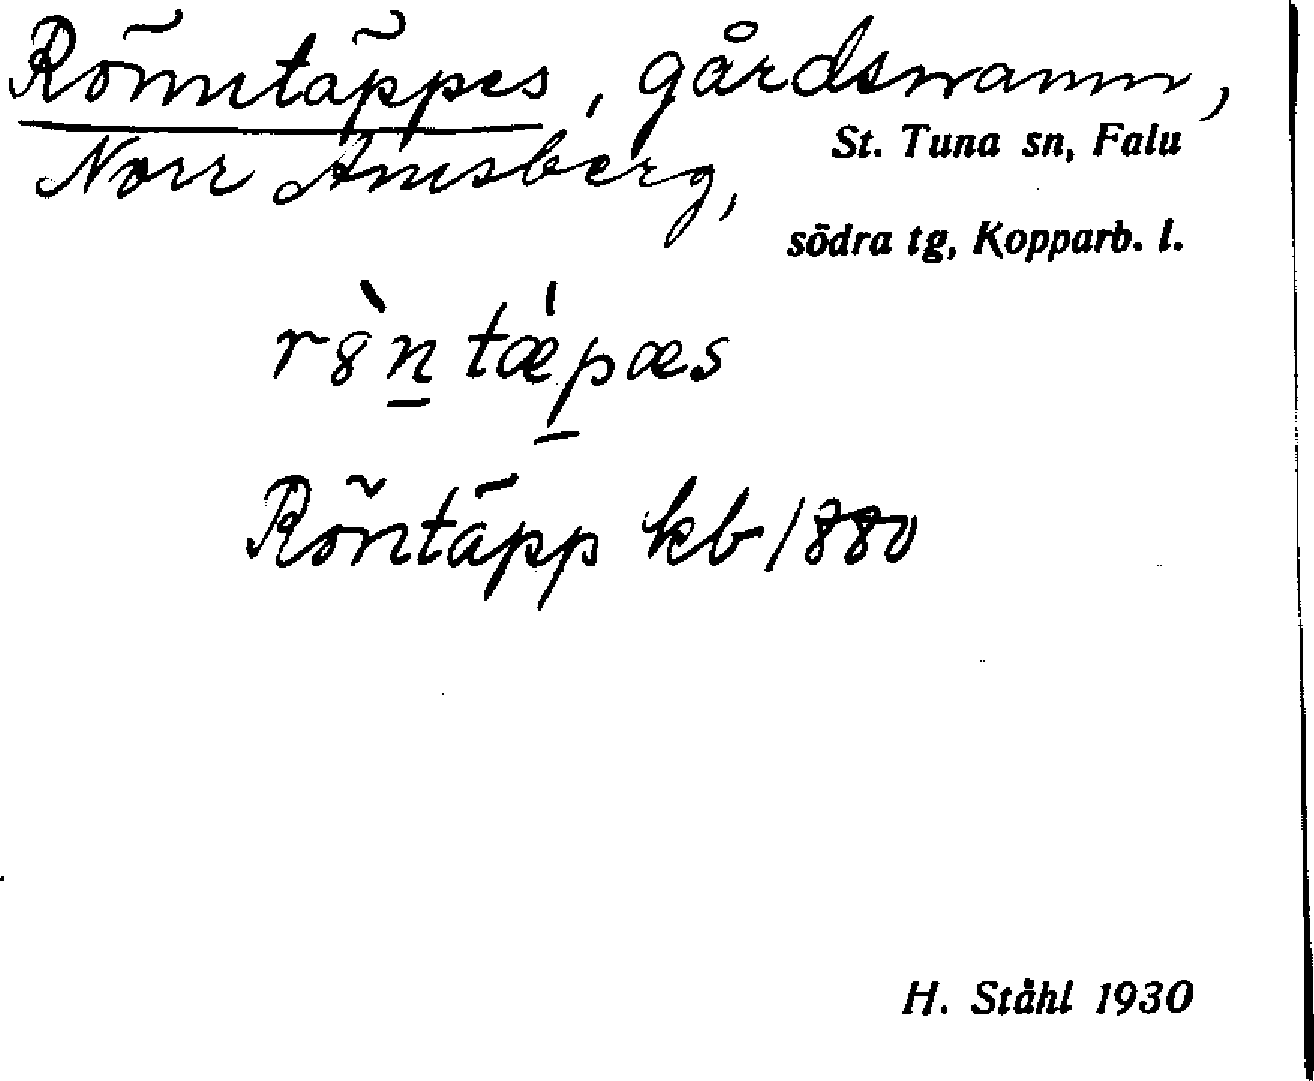 Rönntäppes, gårdsnamn,
Norr Amsberg,
St. Tuna sn, Falu
södra tg, Kopparb. l.
r8̀n̲ tǽp̲æs
Röntäpp kb 1880
H. Ståhl 1930